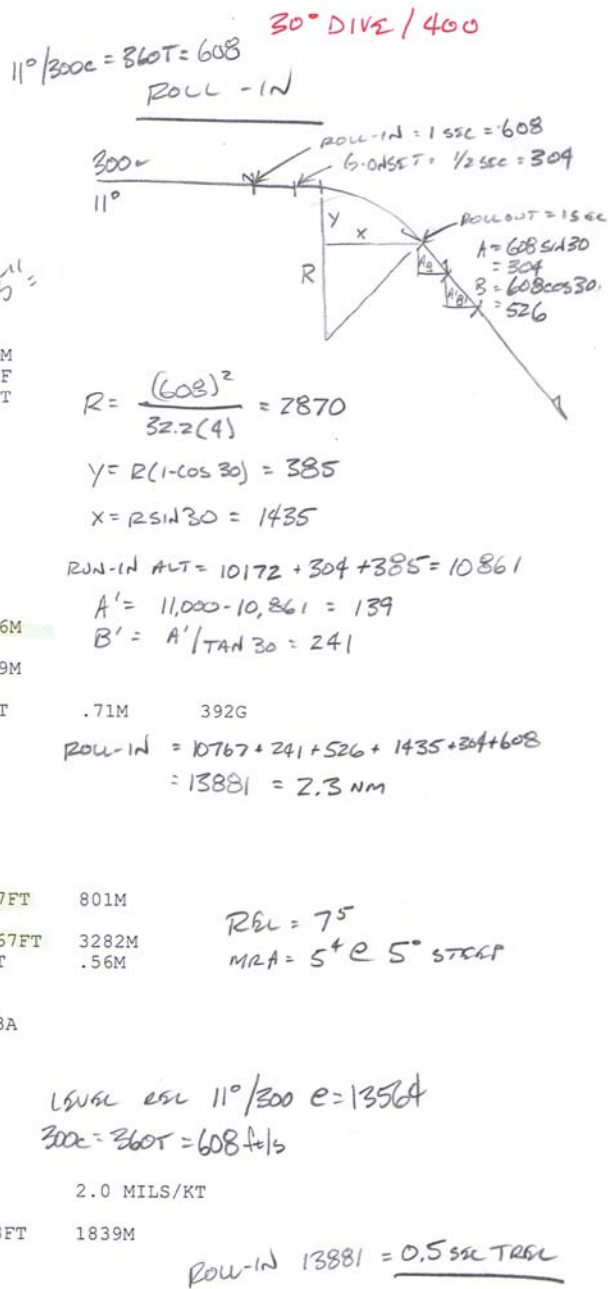 30° DIVE / 400
11°/300c = 360T = 608
ROLL-IN
ROLL-IN = 1 SEC = 608
G-ONSET = 1/2 SEC = 304
300c
11°
Y
X
R
ROLLOUT = 1 SEC
A = 608 SIN30
= 304
B = 608 COS 30.
= 526
A
B
A'
B'
M
F
T
R = (608)² / 32.2(4) = 2870
Y = R(1-COS 30) = 385
X = R SIN 30 = 1435
RUN-IN ALT = 10172 + 304 + 385 = 10861
A' = 11,000 - 10,861 = 139
6M
B' = A'/TAN 30 = 241
9M
T .71M 392G
ROLL-IN = 10767 + 241 + 526 + 1435 + 304 + 608
= 13881 = 2.3 NM
7FT 801M
REL = 7⁵
67FT 3282M
T .56M
MRA = 5⁴ @ 5° STEEP
8A
LEVEL REL 11°/300 @ = 13564
300c = 360T = 608 ft/s
2.0 MILS/KT
FT 1839M
ROLL-IN 13881 = 0.5 SEC TREL